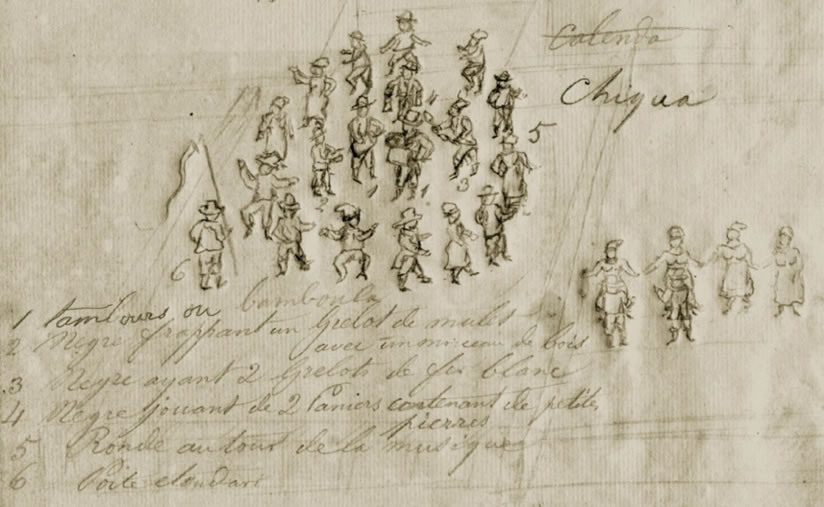 Calenda
Chiqua
5
1
1
3
2
6
1 tambours ou bamboula
2 Negre frappant un Grelot de mulet
avec un morceau de bois
3 Negre ayant 2 Grelots de fer blanc
4 Negre jouant de 2 Paniers contenant de petites
pierres
5 Ronde autour de la musique
6 Porte etendart